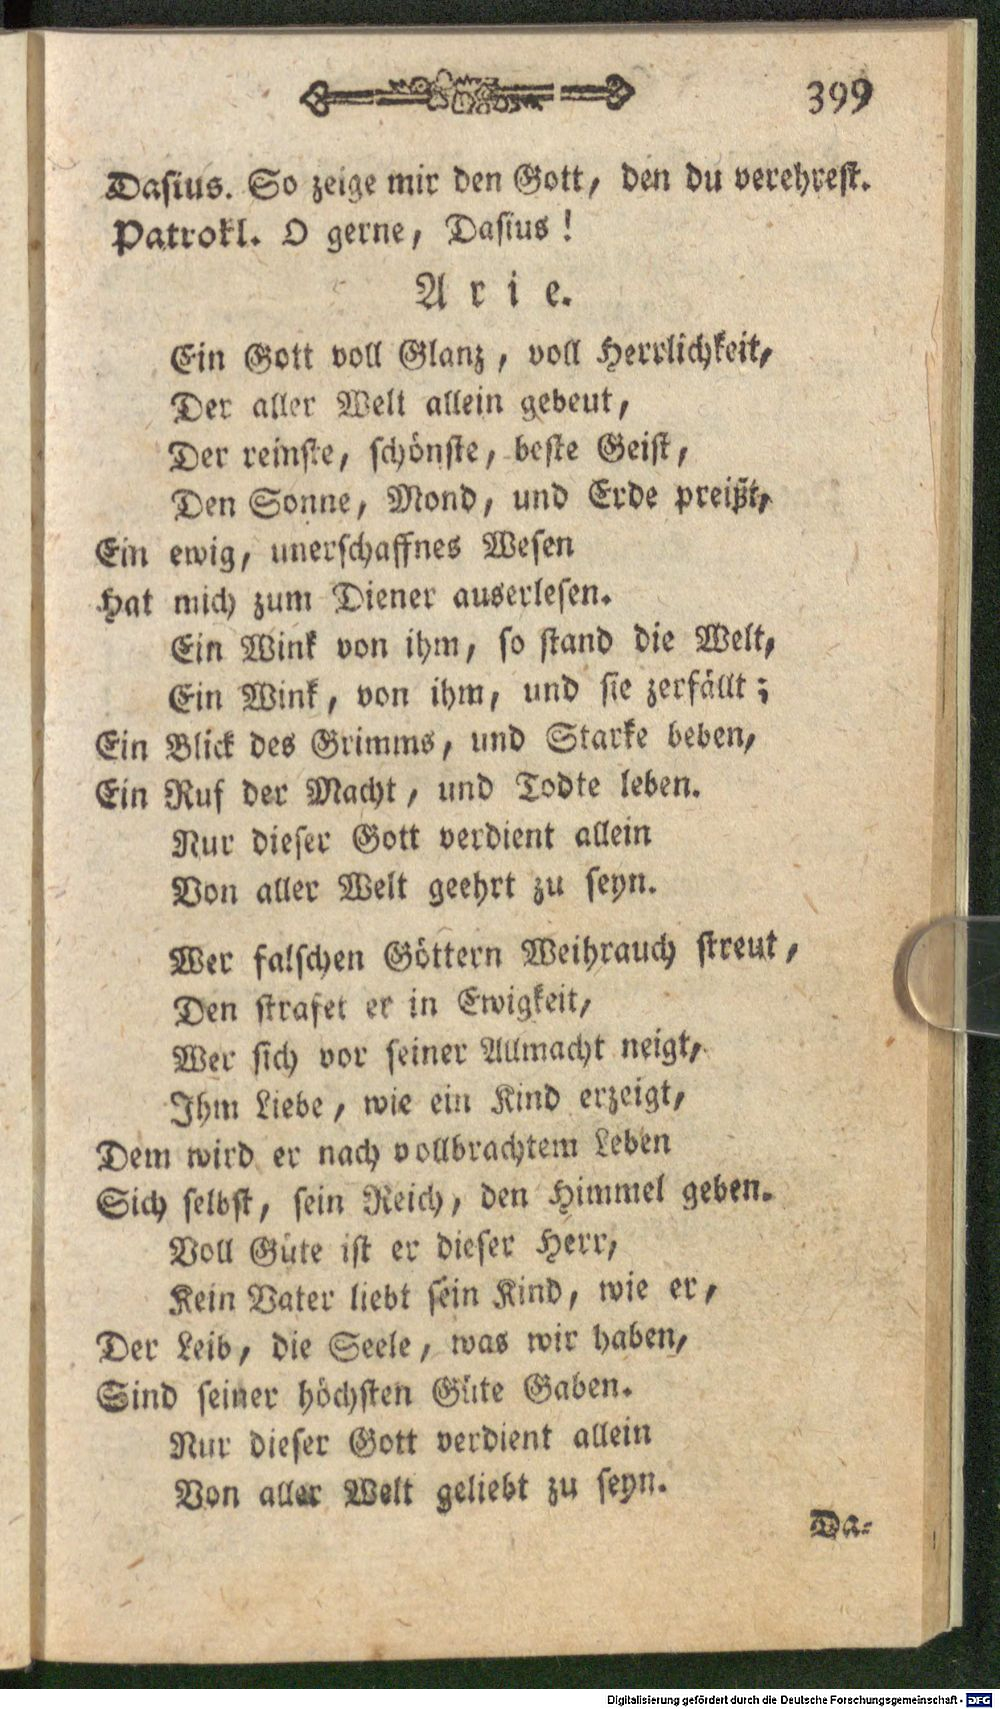 399
Dasius. So zeige mir den Gott, den du verehrest.
Patrokl. O gerne, Dasius!
Arie.
Ein Gott voll Glanz, voll Herrlichkeit,
Der aller Welt allein gebeut,
Der reinste, schönste, beste Geist,
Den Sonne, Mond, und Erde preißt,
Ein ewig, unerschaffnes Wesen
Hat mich zum Diener auserlesen.
Ein Wink von ihm, so stand die Welt,
Ein Wink, von ihm, und sie zerfällt;
Ein Blick des Grimms, und Starke beben,
Ein Ruf der Macht, und Todte leben.
Nur dieser Gott verdient allein
Von aller Welt geehrt zu seyn.
Wer falschen Göttern Weihrauch streut,
Den strafet er in Ewigkeit,
Wer sich vor seiner Allmacht neigt,
Ihm Liebe, wie ein Kind erzeigt,
Dem wird er nach vollbrachtem Leben
Sich selbst, sein Reich, den Himmel geben.
Voll Güte ist er dieser Herr,
Kein Vater liebt sein Kind, wie er,
Der Leib, die Seele, was wir haben,
Sind seiner höchsten Güte Gaben.
Nur dieser Gott verdient allein
Von aller Welt geliebt zu seyn.
Da-
Digitalisierung gefördert durch die Deutsche Forschungsgemeinschaft - DFG